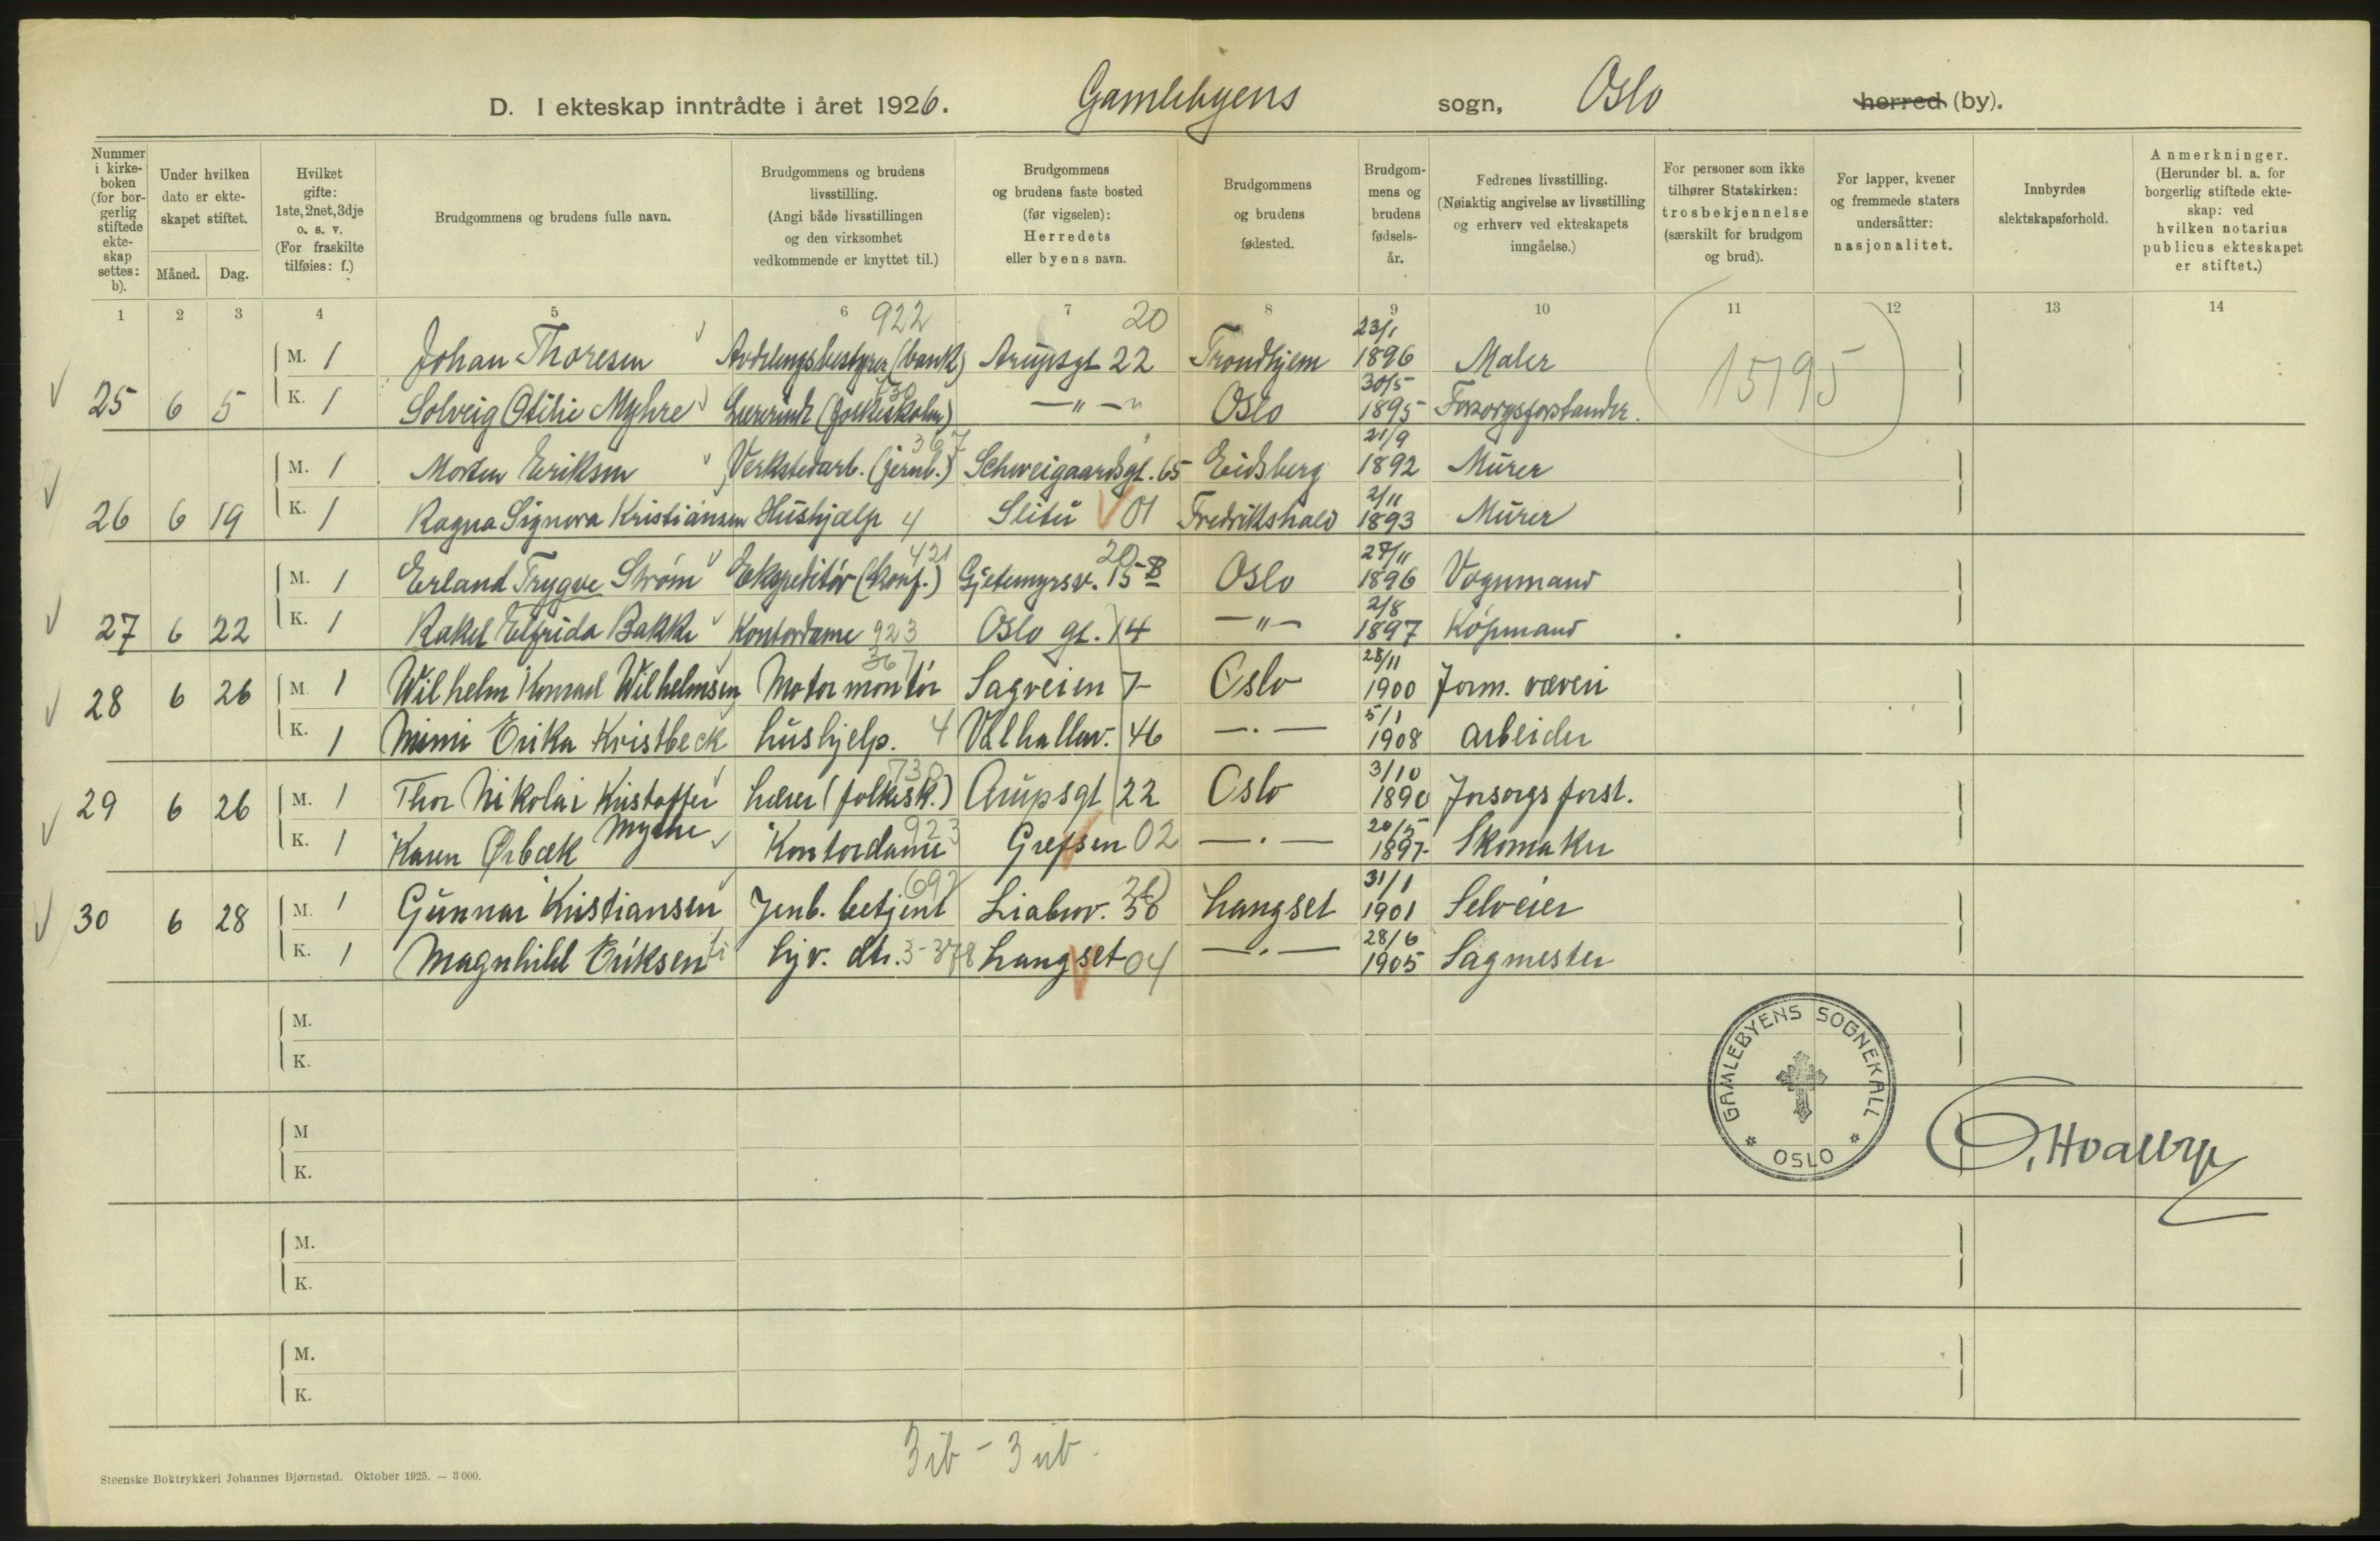 D. I ekteskap inntrådte i året 1926. Gamlebyens sogn, Oslo herred (by).
Nummer i kirkeboken (for borgerlig stiftede ekteskap settes: b).
Under hvilken dato er ekteskapet stiftet.
Måned. Dag.
Hvilket gifte: 1ste, 2net, 3dje o. s. v. (For fraskilte tilføies: f.)
Brudgommens og brudens fulle navn.
Brudgommens og brudens livsstilling. (Angi både livsstillingen og den virksomhet vedkommende er knyttet til.)
Brudgommens og brudens faste bosted (før vigselen): Herredets eller byens navn.
Brudgommens og brudens fødested.
Brudgommens og brudens fødselsår.
Fedrenes livsstilling. (Nøiaktig angivelse av livsstilling og erhverv ved ekteskapets inngåelse.)
For personer som ikke tilhører Statskirken: trosbekjennelse (særskilt for brudgom og brud).
For lapper, kvener og fremmede staters undersåtter: nasjonalitet.
Innbyrdes slektskapsforhold.
Anmerkninger. (Herunder bl. a. for borgerlig stiftede ekteskap: ved hvilken notarius publicus ekteskapet er stiftet.)
1 2 3 4 5 6 7 8 9 10 11 12 13 14
922 20 23/1
M. 1 Johan Thoresen Avdelingsbestyrer (bank) Arupsgt 22 Trondhjem 1896 Maler
15195
730 30/5
25 6 5 K. 1 Solveig Otilie Myhre Lærerinde (folkeskolen) — " — Oslo 1895 Forsorgsforstander.
367 21/9
M. 1 Morten Eriksen Verkstedarb. (jernb.) Schweigaardsgt. 65 Eidsberg 1892 Murer
2/11
26 6 19 K. 1 Ragna Signora Kristiansen Hushjælp 4 Slitu 01 Fredrikshald 1893 Murer
421 20 27/11
M. 1 Erland Trygve Strøm Ekspeditør (konf.) Gjetemyrsv. 15 B Oslo 1896 Vognmand
2/8
27 6 22 K. 1 Rakel Elfrida Bakke Kontordame 923 Oslo gt. 14 — " — 1897 Kjøpmand
367 28/11
28 6 26 M. 1 Wilhelm Konrad Wilhelmsen Motormontør Sagveien 7 Oslo 1900 Form. væveri
5/1
K. 1 Mimi Erika Kristbeck hushjelp. 4 Valhallav. 46 — . — 1908 arbeider
730 3/10
29 6 26 M. 1 Thor Nikolai Kristoffer Myhre Lærer (folkesk.) Arupsgt 22 Oslo 1890 Forsorgsforst.
923 20/5
K. 1 Karen Ørbæk Kontordame Grefsen 02 — . — 1897 Skomaker
692 20 31/1
30 6 28 M. 1 Gunnar Kristiansen Jernb. betjent Liabrov. 38 Langset 1901 Selveier
28/6
K. 1 Magnhild Eriksen hjv. dtr. 3-378 Langset 04 — . — 1905 Sagmester
M.
K.
GAMLEBYENS SOGNEKALL * OSLO *
M
K.
M.
K.
M.
K.
3 ib - 3 ub.
Steenske Boktrykkeri Johannes Bjørnstad. Oktober 1925. — 3 000.